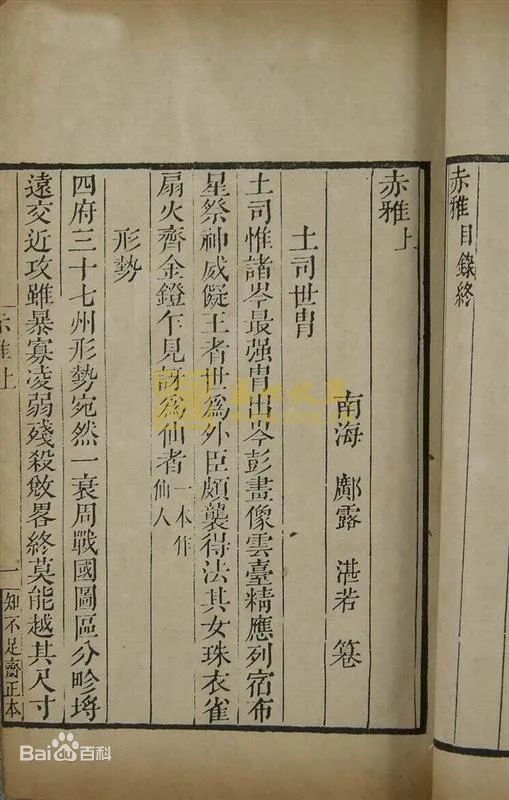 赤雅目錄終
赤雅上
南海 鄺露 湛若 簒
土司世冑
土司惟諸岑最强冑出岑彭畫像雲臺精應列宿布
星祭神威儗王者世爲外臣頗襲得法其女珠衣雀
扇火齊金鐙乍見訝爲仙者一本作仙人
形勢
四府三十七州形勢宛然一衰周戰國圖區分畛埒
遠交近攻雖暴寡凌弱殘殺攸畧終莫能越其尺寸
赤雅上
一
知不足齋正本
Bai du 百科